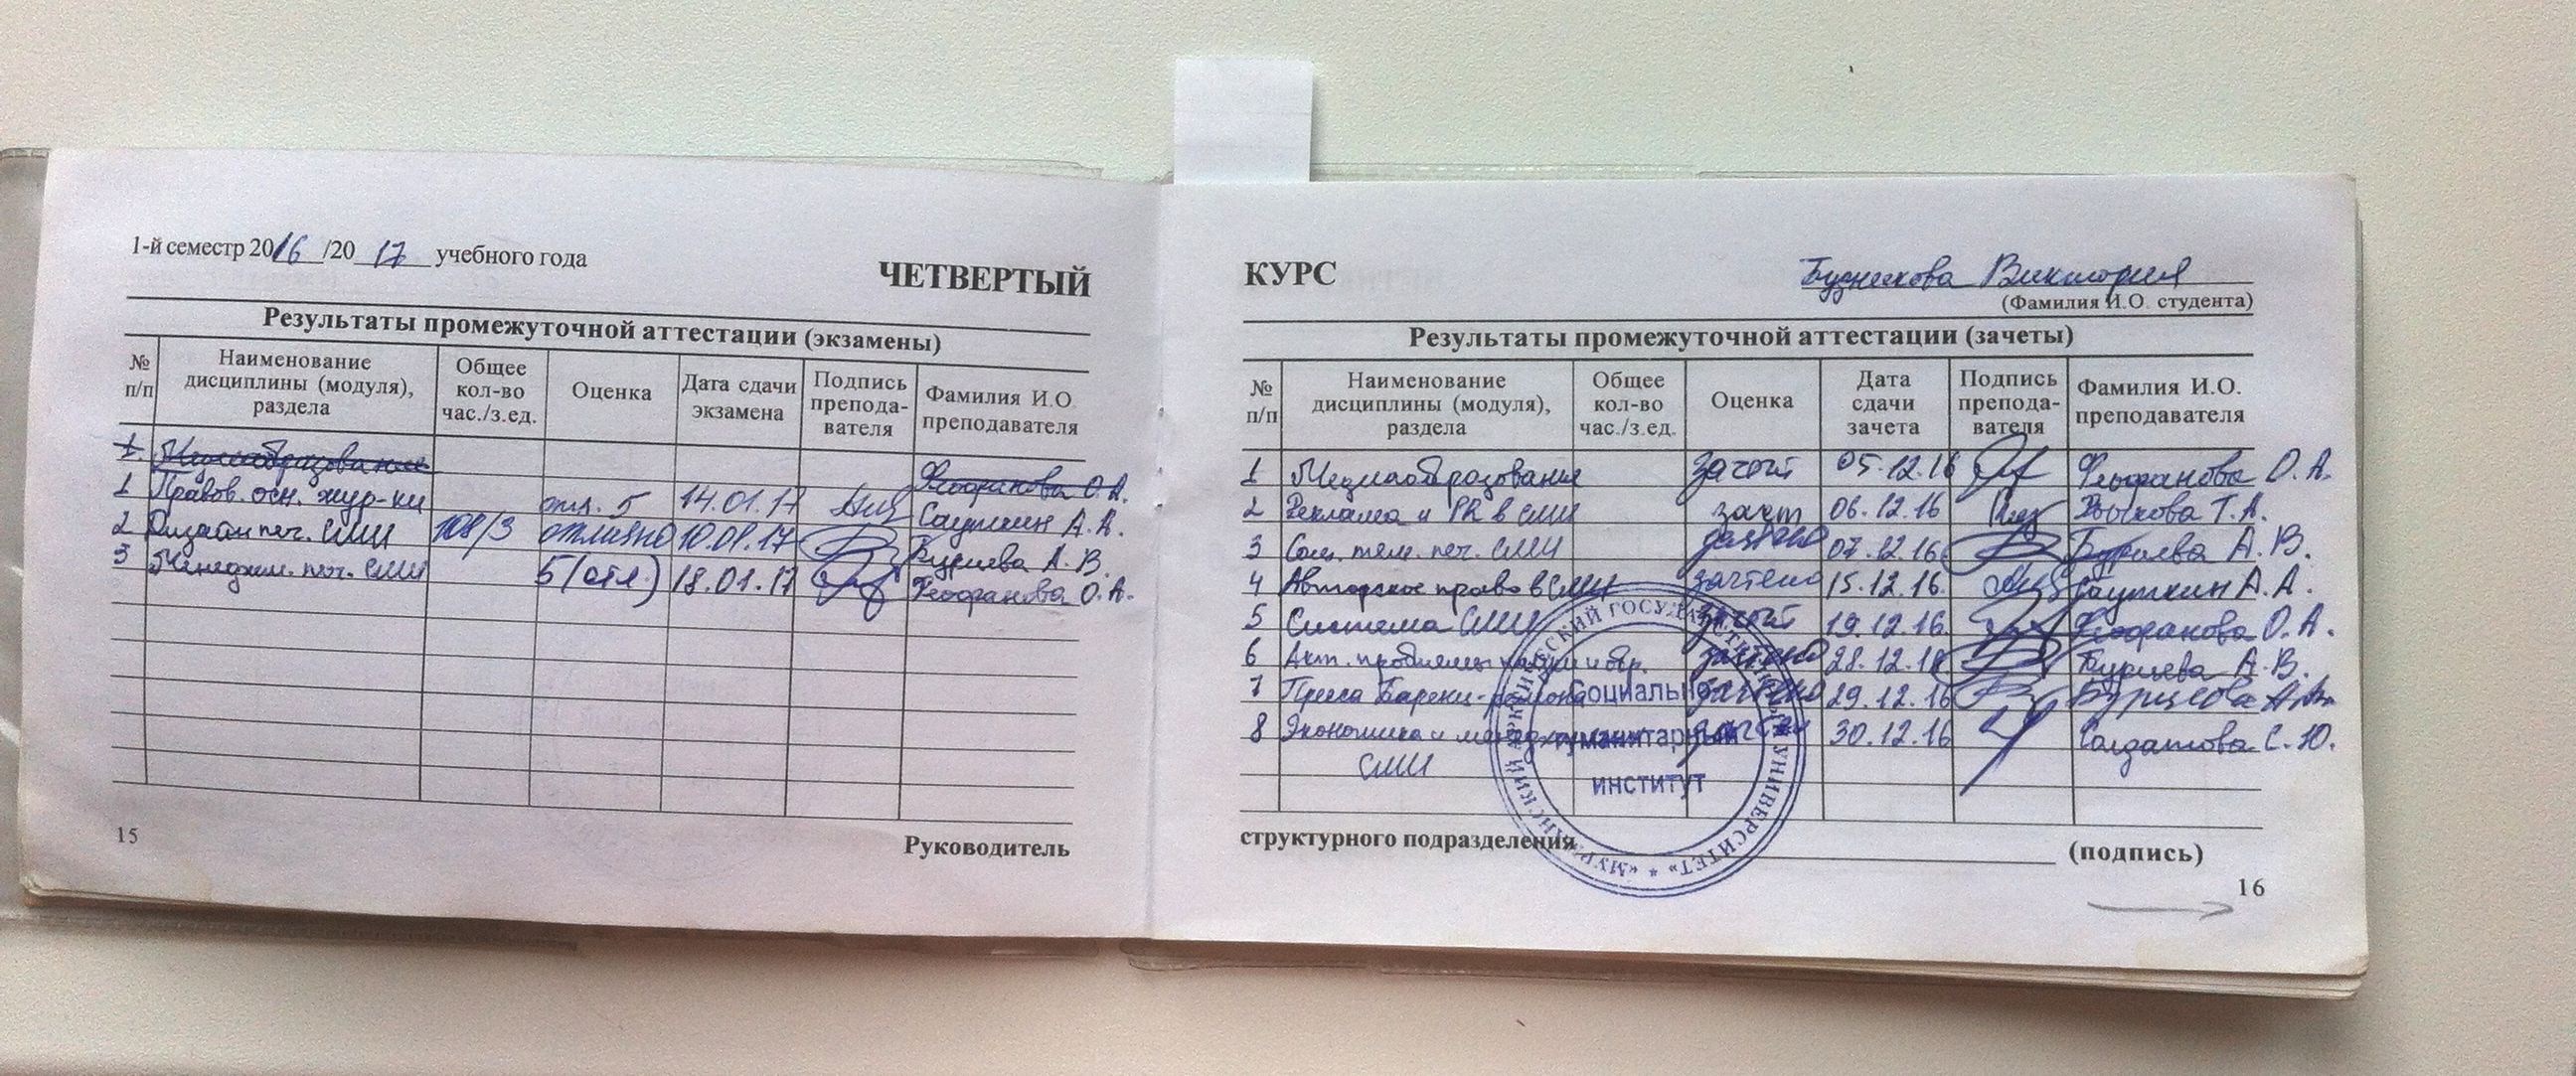 1-й семестр 2016/2017 учебного года
ЧЕТВЕРТЫЙ
Результаты промежуточной аттестации (экзамены)
№ п/п Наименование дисциплины (модуля), раздела Общее кол-во час./з.ед. Оценка Дата сдачи экзамена Подпись препода-вателя Фамилия И.О. преподавателя
1. Медиаобразование Феофанова О.А.
1 Правов. осн. жур-ки отл. 5 14.01.17 Саушкин А.А.
2 Дизайн печ. СМИ 108/3 отлично 10.01.17 А.В.
3 Менеджм. печ. СМИ 5 (отл.) 18.01.17 Феофанова О.А.
15
Руководитель
КУРС
Виктория
(Фамилия И.О. студента)
Результаты промежуточной аттестации (зачеты)
№ п/п Наименование дисциплины (модуля), раздела Общее кол-во час./з.ед. Оценка Дата сдачи зачета Подпись препода-вателя Фамилия И.О. преподавателя
1 Медиаобразование зачет 05.12.16 Феофанова О.А.
2 Реклама и PR в СМИ зачет 06.12.16 Т.А.
3 печ. СМИ зачтено 07.12.16 А.В.
4 Авторское право в СМИ зачтено 15.12.16. Саушкин А.А.
5 Система СМИ зачет 19.12.16. Феофанова О.А.
6 Акт. проблемы зачтено 28.12.16 А.В.
7 Пресса Баренц-региона зачтено 29.12.16
8 Экономика и менеджмент зачтено 30.12.16 Солдатова С.Ю.
СМИ
Социально-
гуманитарный
институт
УНИВЕРСИТЕТ» * «МУРМАНСКИЙ АРКТИЧЕСКИЙ ГОСУДАРСТВЕННЫЙ
структурного подразделения (подпись)
16